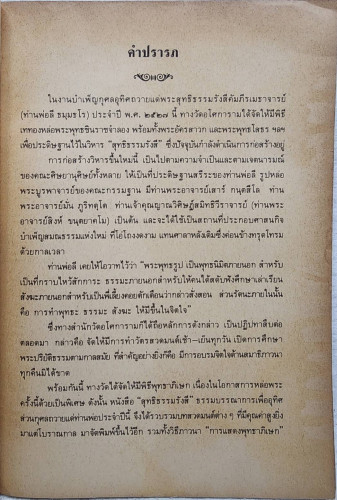 คำปรารภ
ในงานบำเพ็ญกุศลอุทิศถวายแด่พระสุทธิธรรมรังสีคัมภีรเมธาจารย์
(ท่านพ่อลี ธมฺมธโร) ประจำปี พ.ศ. ๒๕๒๗ นี้ ทางวัดอโศการามได้จัดให้มีพิธี
เททองหล่อพระพุทธชินราชจำลอง พร้อมทั้งพระอัครสาวก และพระพุทธโสธร ฯลฯ
เพื่อประดิษฐานไว้ในวิหาร "สุทธิธรรมรังสี" ซึ่งปัจจุบันกำลังดำเนินการก่อสร้างอยู่
การก่อสร้างวิหารขึ้นใหม่นี้ เป็นไปตามความจำเป็นและตามเจตนารมณ์
ของคณะศิษยานุศิษย์ทั้งหลาย ให้เป็นที่ประดิษฐานสรีระของท่านพ่อลี รูปหล่อ
พระบูรพาจารย์ของคณะกรรมฐาน มีท่านพระอาจารย์เสาร์ กนฺตสีโล ท่าน
พระอาจารย์มั่น ภูริทตฺโต ท่านเจ้าคุณญาณวิศิษฏ์สมิทธิวีราจารย์ (ท่านพระ
อาจารย์สิงห์ ขนฺตยาคโม) เป็นต้น และจะได้ใช้เป็นสถานที่ประกอบศาสนกิจ
บำเพ็ญสมณธรรมแห่งใหม่ ที่โอ่โถงงดงาม แทนศาลาหลังเดิมซึ่งค่อนข้างทรุดโทรม
ด้วยกาลเวลา
ท่านพ่อลี เคยให้โอวาทไว้ว่า "พระพุทธรูป เป็นพุทธนิมิตภายนอก สำหรับ
เป็นที่กราบไหว้สักการะ ธรรมะภายนอกสำหรับให้คนได้สดับฟังศึกษาเล่าเรียน
สังฆะภายนอกสำหรับเป็นพี่เลี้ยงคอยตักเตือนว่ากล่าวสั่งสอน ส่วนรัตนะภายในนั้น
คือ การทำพุทธะ ธรรมะ สังฆะ ให้มีขึ้นในจิตใจ"
ซึ่งทางสำนักวัดอโศการามก็ได้ถือหลักการดังกล่าว เป็นปฏิปทาสืบต่อ
ตลอดมา กล่าวคือ จัดให้มีการทำวัตรสวดมนต์เช้า-เย็นทุกวัน เปิดการศึกษา
พระปริยัติธรรมตามกาลสมัย ที่สำคัญอย่างยิ่งก็คือ มีการอบรมจิตใจด้านสมาธิภาวนา
ทุกคืนมิได้ขาด
พร้อมกันนี้ ทางวัดได้จัดให้มีพิธีพุทธาภิเษก เนื่องในโอกาสการหล่อพระ
ครั้งนี้ด้วยเป็นพิเศษ ดังนั้น หนังสือ "สุทธิธรรมรังสี" ธรรมบรรณาการเพื่ออุทิศ
ส่วนกุศลถวายแด่ท่านพ่อประจำปีนี้ จึงได้รวบรวมบทสวดมนต์ต่าง ๆ ที่มีคุณค่าสูงยิ่ง
มาแต่โบราณกาล มาจัดพิมพ์ขึ้นไว้อีก รวมทั้งวิธีภาวนา "การแสดงพุทธาภิเษก"